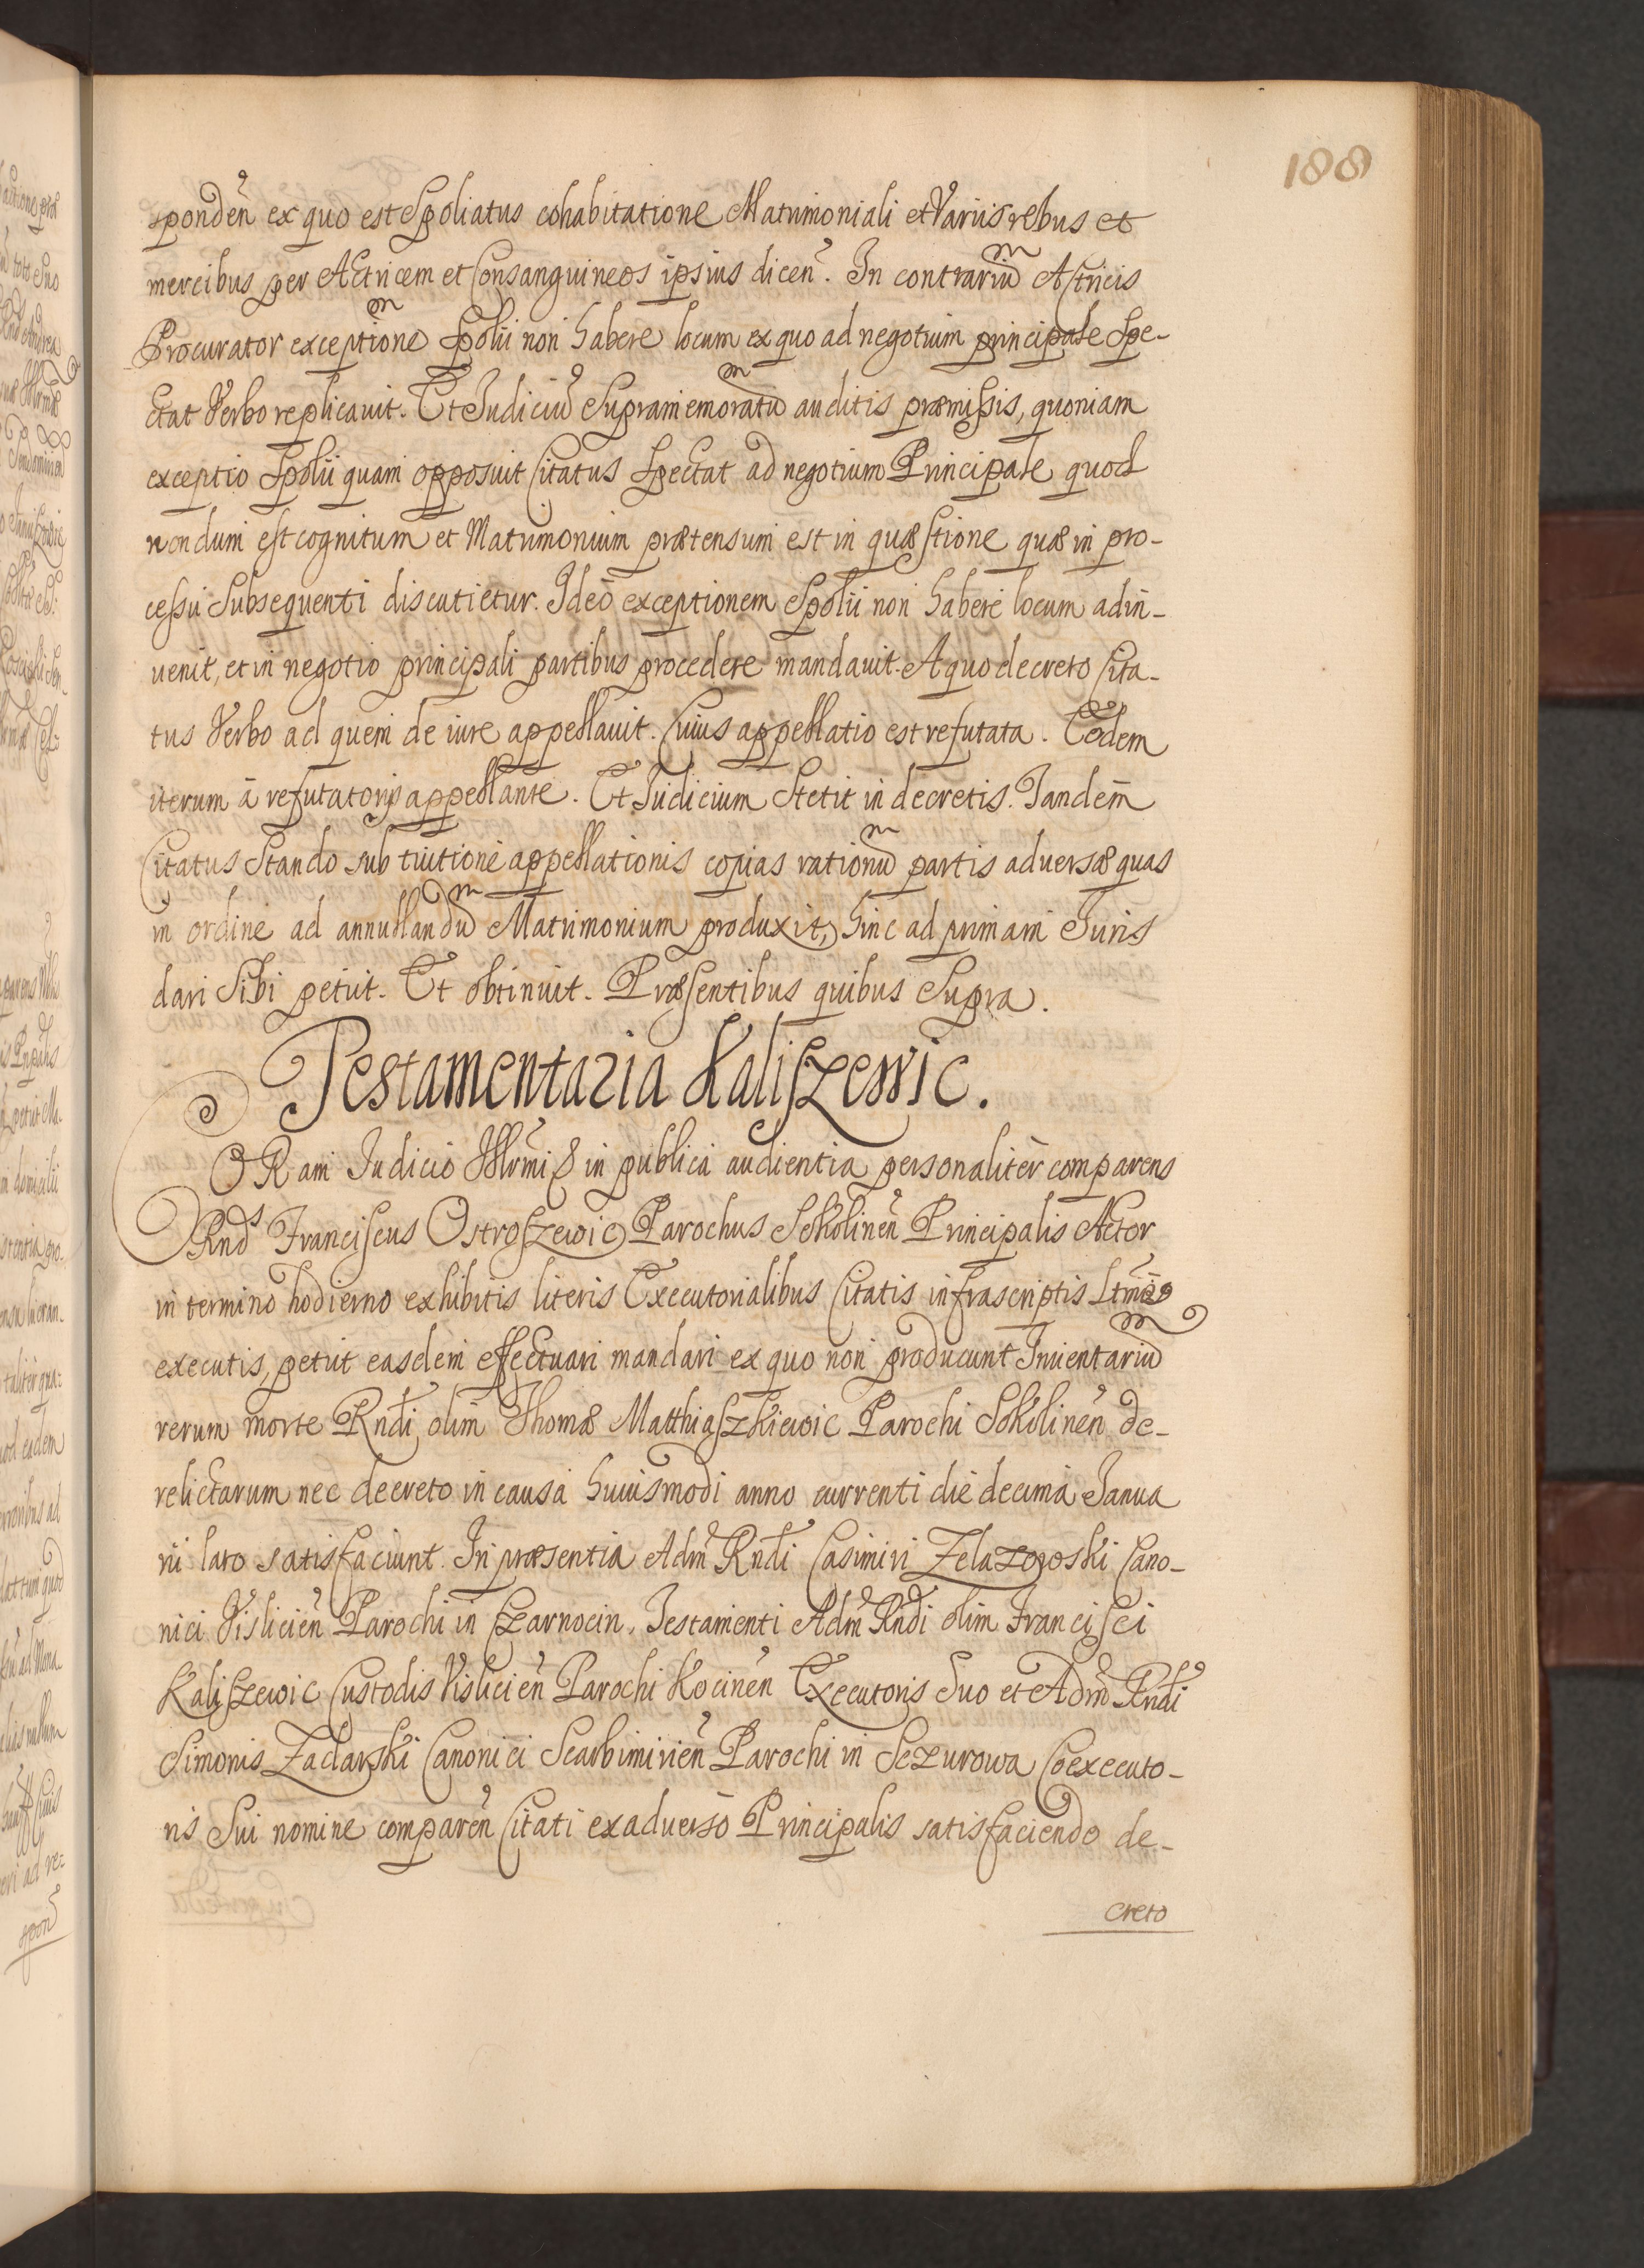 188
sponden̄ ex quo est Spoliatus cohabitatione Matrimoniali et Variis rebus et
mercibus per Actricem et Consanguineos ipsius dicen̄. In contrariū Actricis
Procurator exceptione Spolii non habere locum ex quo ad negotium principale Spe-
ctat Verbo replicauit. Et Judiciū Supramemoratū auditis præmissis, quoniam
exceptio Spolii quam opposuit Citatus Spectat ad negotium Principale quod
nondum est cognitum et Matrimonium prætensum est in quæstione quæ in pro-
cessu Subsequenti discutietur. Ideo exceptionem Spolii non habere locum adin-
uenit, et in negotio principali partibus procedere mandauit. A quo decreto Cita-
tus Verbo ad quem de iure appellauit. Cuius appellatio est refutata. Eodem
iterum á refutatoriis appellante. Et Judicium Stetit in decretis. Tandem
Citatus Stando sub tuitione appellationis copias rationū partis aduersæ quas
in ordine ad annullandū Matrimonium produxit, hinc ad primam Juris
dari Sibi petiit. Et obtinuit. Præsentibus quibus Supra.
Testamentaria Kaliszewic.
CORam Judicio Illrmi & in publica audientia personaliter comparens
Rnds Franciscus Ostroszewic Parochus Sokolinen̄ Principalis Actor
in termino hodierno exhibitis literis Executorialibus Citatis infrascriptis Ltmē
executis, petiit easdem effectuari mandari ex quo non producunt Inuentariū
rerum morte Rndi olim Thomæ Matthiaszkiewic Parochi Sokolinen̄ de-
relictarum nec decreto in causa huiusmodi anno currenti die decima Janua
rii lato satisfaciunt. In præsentia Adm̄ Rndi Casimiri Zelazowski Cano-
nici Vislicien̄ Parochi in Czarnocin. Testamenti Adm̄ Rndi olim Francisci
Kaliszewic Custodis Vislicien̄ Parochi Kocinen̄ Executoris Suo et Adm̄ Rndi
Simonis Zaclarski Canonici Scarbimirien̄ Parochi in Sczurowa Coexecuto-
ris Sui nomine comparen̄ Citati ex aduerso Principalis satisfaciendo de-
creto